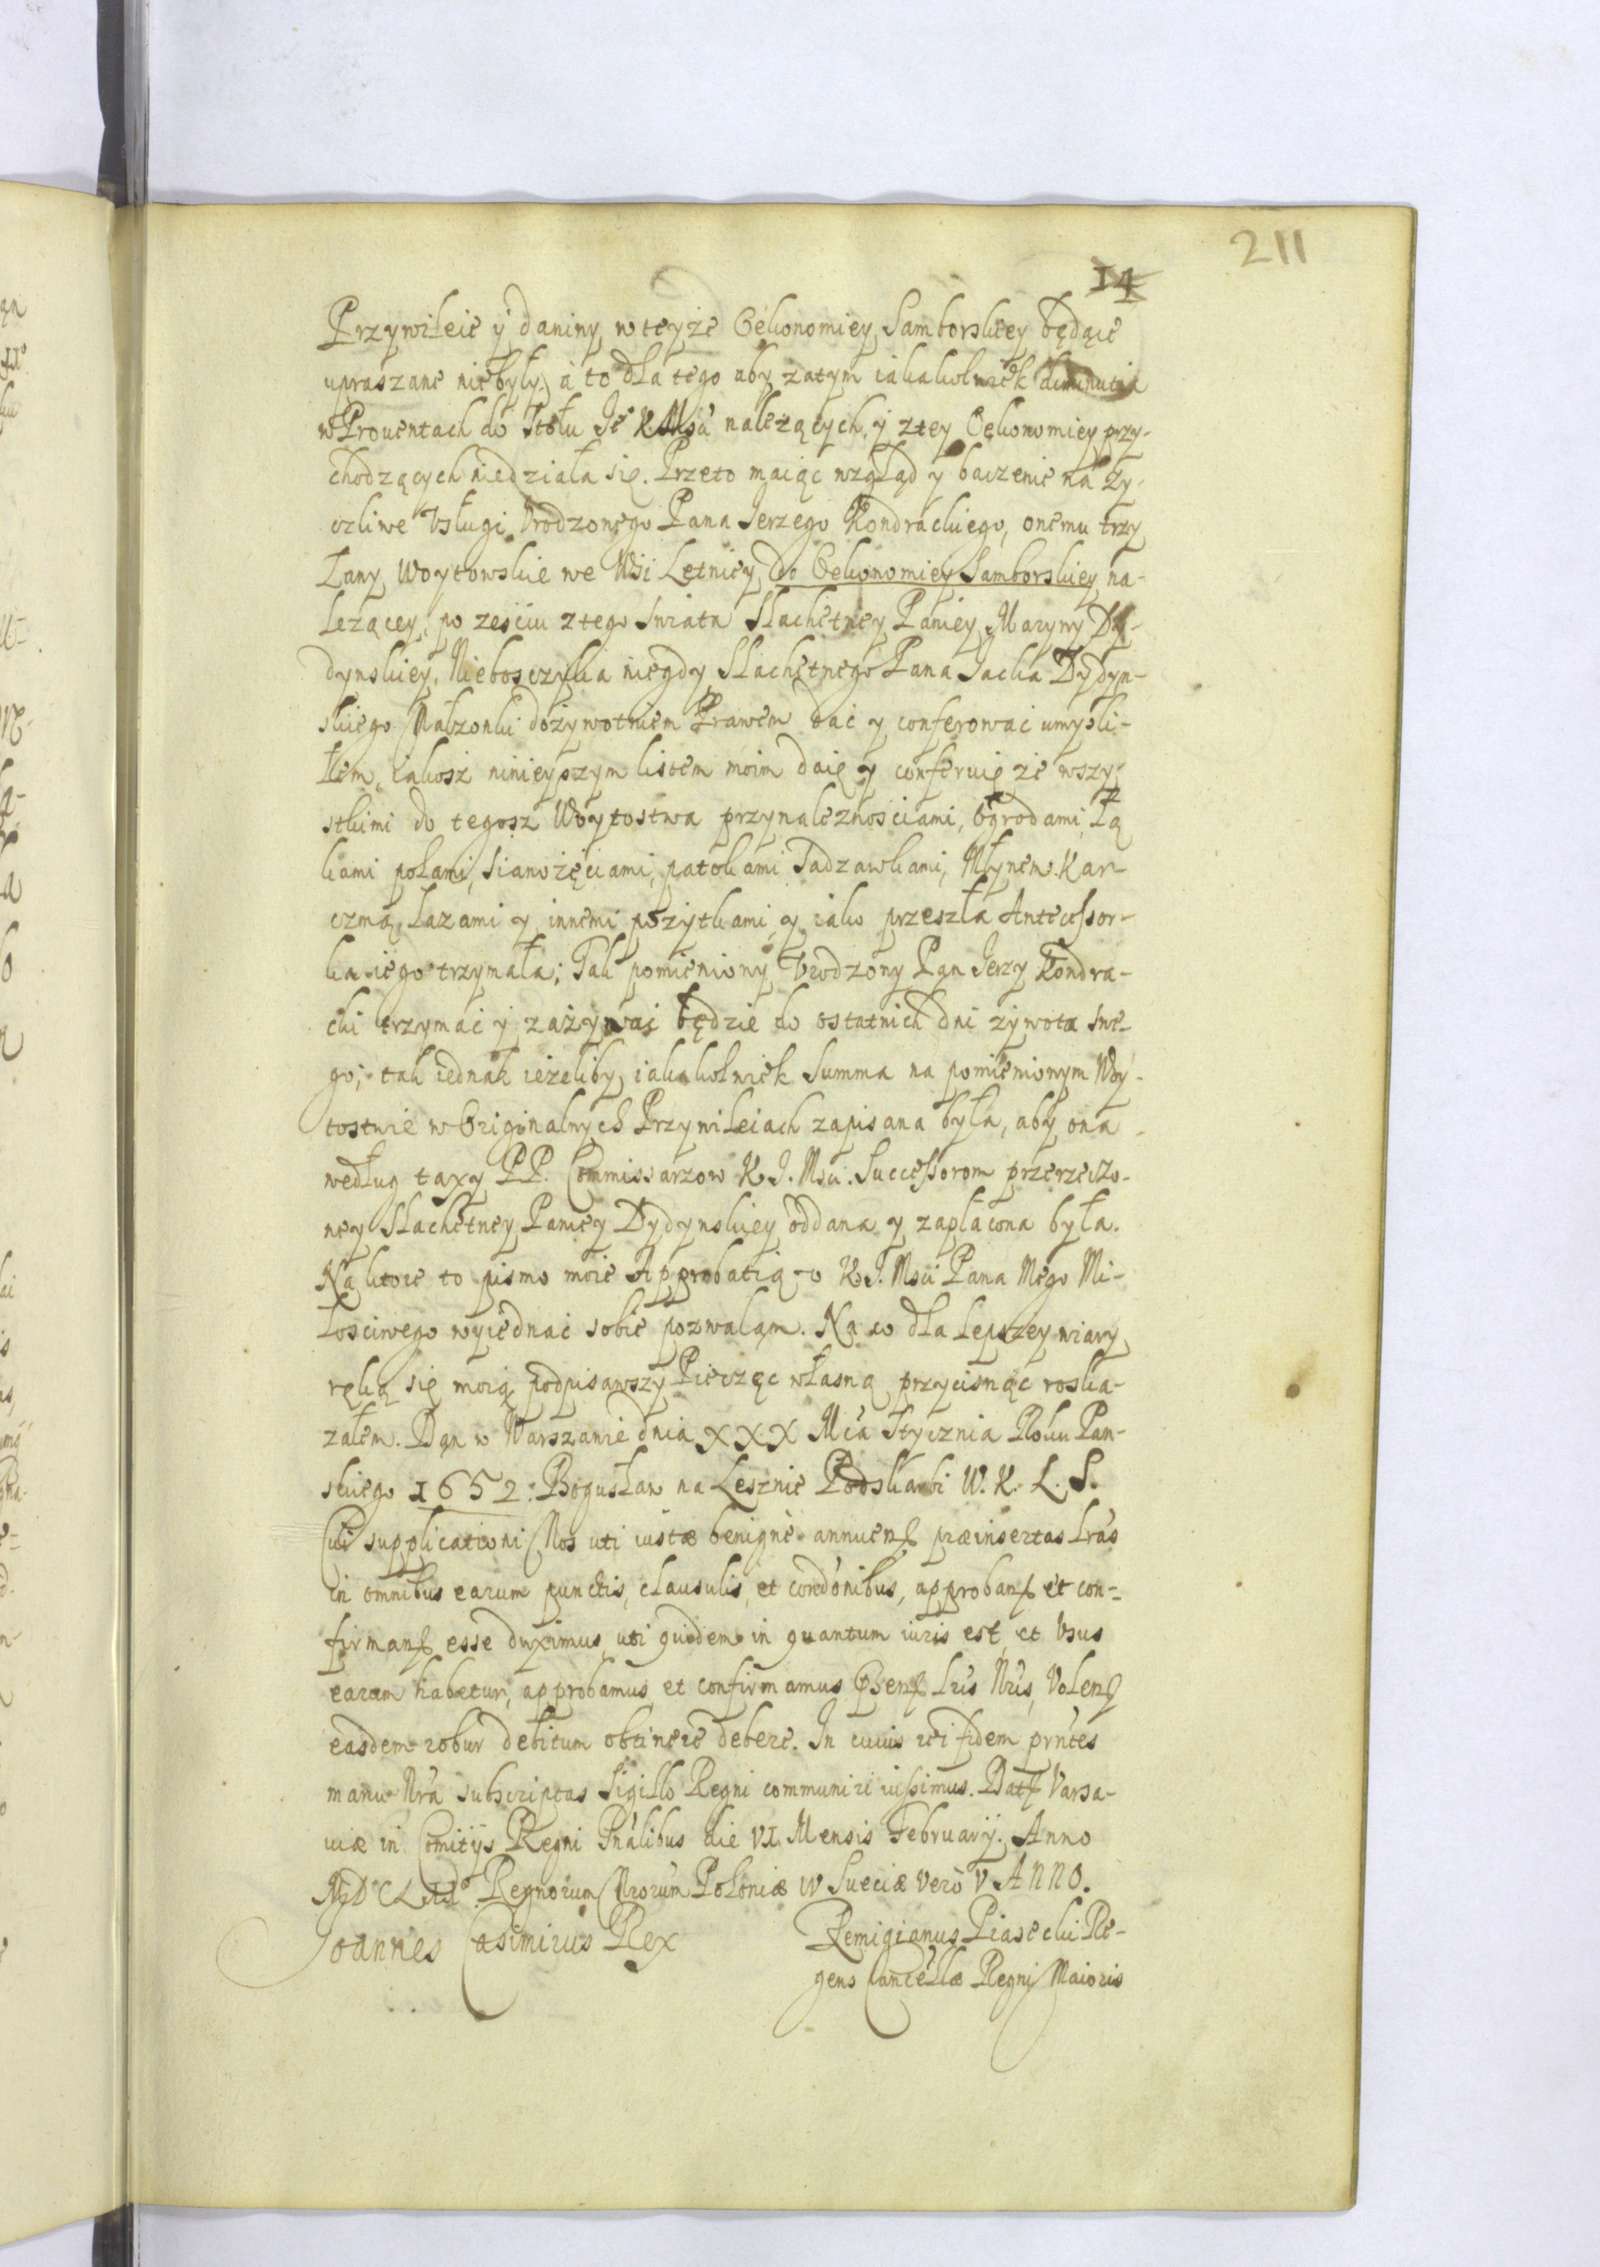 211
14
Przywileie y daniny w teyże Oekonomiey Samborskiey będące
upraszane niebyły, a to dla tego aby zatym iakakolwiek diminutia
w Prouentach do Stołu Je K Msci należących, y z tey Oekonomiey przy-
chodzących niedziała się. Przeto maiąc wzgląd y baczenie na ży-
czliwe Usługi Urodzonego Pana Jerzego Kondrackiego, onemu trzy
Łany Woytowskie we Wsi Letniey do Oekonomiey Samborskiey na-
leżącey, po zesciu z tego swiata Slachetney Paniey Maryny Dy-
dynskiey, Nieboszczyka niegdy Slachetnego Pana Jacka Dydyn-
skiego Małzonki dożywotniem Prawem dać y conferować umysli-
łem, iakosz ninieyszym listem moim daię y conferuię ze wszy-
stkimi do tegosz Woytostwa przynależnosciami, Ogrodami, Łą
kami polami, Sianożęciami, patokami Sadzawkami, Młynem Kar
czmą, Łazami y innemi pożytkami, y iako przeszła Antecessor-
ka iego trzymała; Tak pomieniony Urodzony Pan Jerzy Kondra-
cki trzymać y zażywać będzie do ostatnich dni żywota swe-
go; tak iednak ieżeliby iakakolwiek Summa na pomienionym Woy-
tostwie w Originalnych Przywileiach zapisana była, aby ona
według taxy PP. Commissarzow K. J. Msci. Successorom przerzeczo-
ney Slachetney Paniey Dydynskiey oddana y zapłacona była.
Na ktore to pismo moie Approbatią u K. J. Msci Pana Mego Mi-
łosciwego wyiednać sobie pozwalam. Na co dla lepszey wiary
ręką się moią podpisawszy Pieczęc własną przycisnąc roska-
załem. Dan w Warszawie dnia XXX Mca Stycznia Roku Pan-
skiego 1652. Bogusław na Lesznie Podskarbi W. K. L. S.
Cui supplicationi Nos uti iustæ benignè annuen præinsertas Lras
in omnibus earum punctis, clausulis, et condonibus, approban et con-
firman esse duximus, uti quidem in quantum iuris est, et Usus
earum habetur, approbamus et confirmamus Psen Lris Nris, Volen
easdem robur debitum obtinere debere. In cuius rei fidem prntes
manu Nra subscriptas Sigillo Regni communiri iussimus. Dat Varsa-
uiæ in Comitijs Regni Gnalibus die VI Mensis Februarij. Anno
Regnorum Nrorum Poloniæ IV Sueciæ Verò V ANNO.
Joannes Casimirus Rex
Remigianus Piasecki Re-
gens Cancellæ Regni Maioris